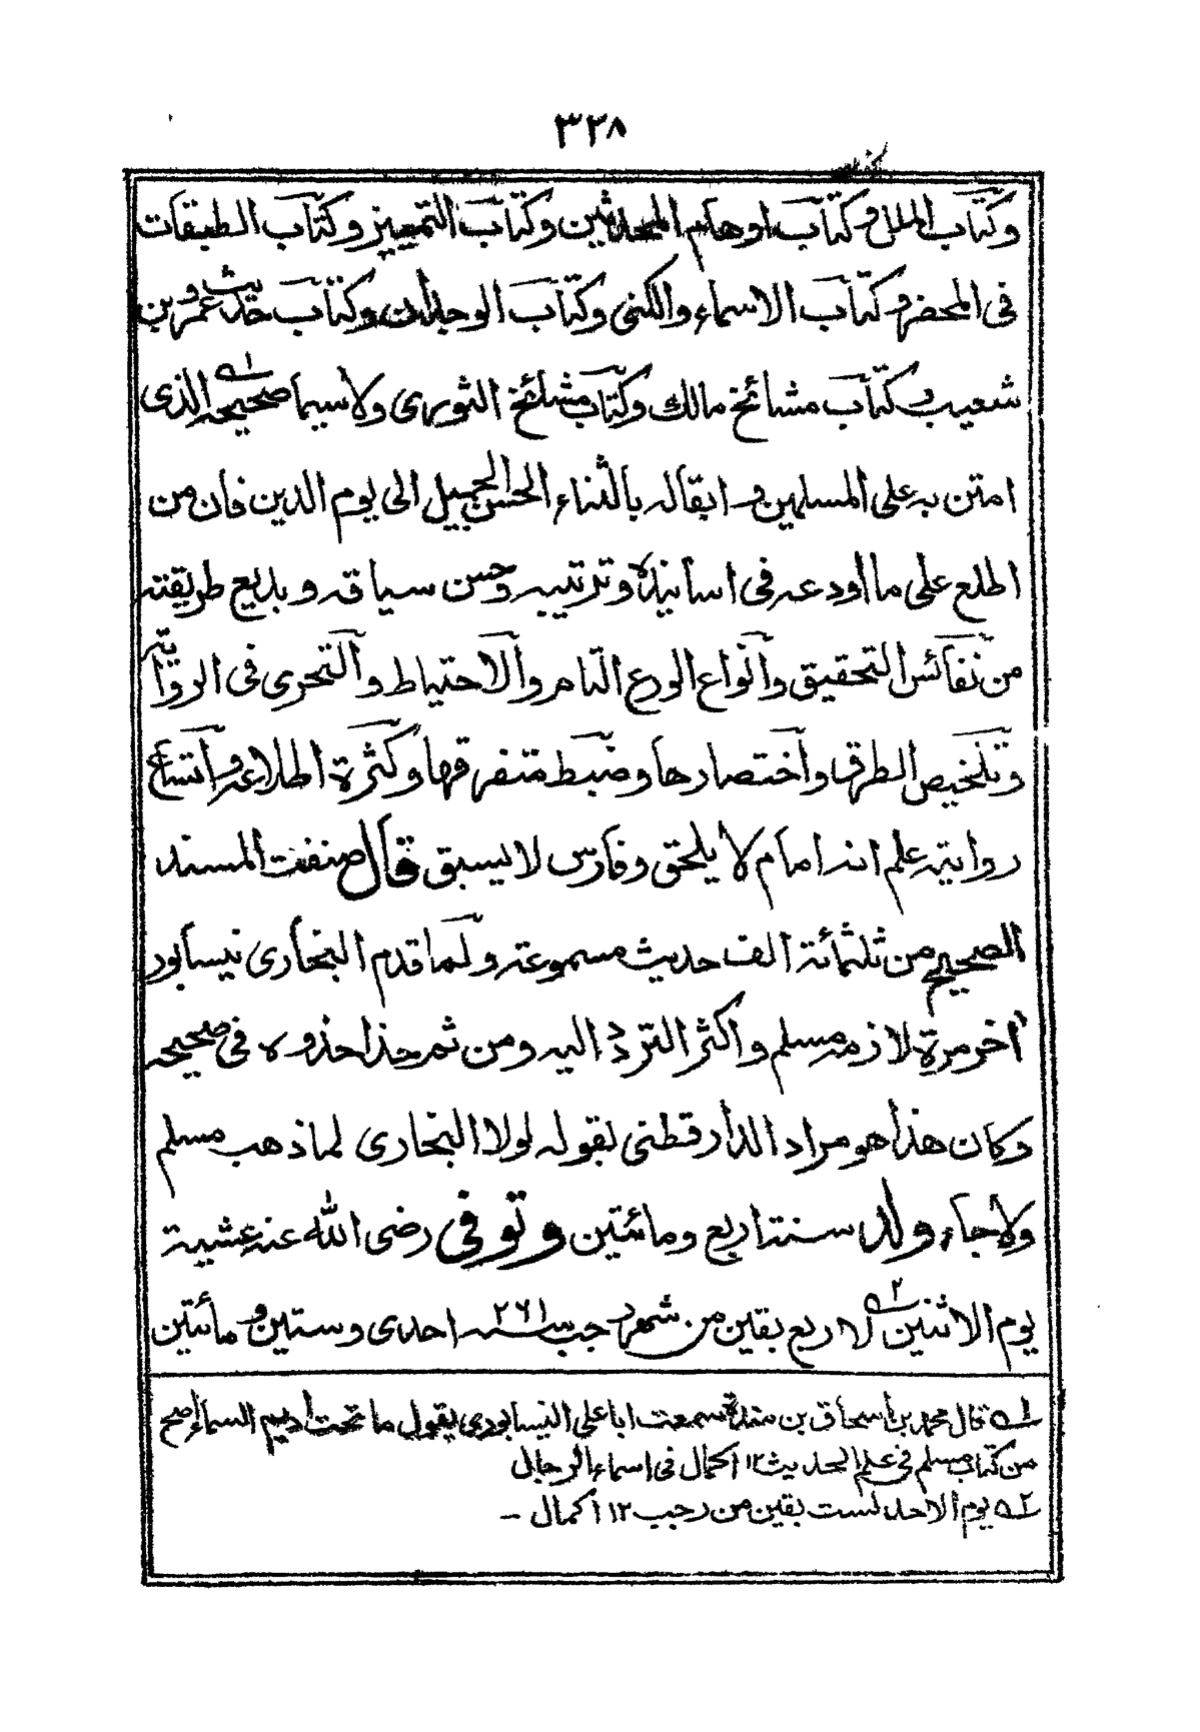 ٣٢٨
وكتاب العلل وكتاب اوهام المحدثين وكتاب التمييز وكتاب الطبقات
فى المحضر وكتاب الاسماء والكنى وكتاب الوحدان وكتاب حديث عمرو بن
شعيب وكتاب مشائخ مالك وكتاب مشائخ الثورى ولاسيما صحيحه ١ الذى
امتن به على المسلمين و ابقاله بالثناء الحسن الجميل الى يوم الدين فان من
اطلع على ما اودعه فى اسانيده وترتيبه وحسن سياقه و بديع طريقته
من نفائس التحقيق وانواع الورع التام والاحتياط والتحرى فى الرواية
وتلخيص الطرق واختصارها وضبط متفرقها وكثرة اطلاعه واتساع
روايته علم انه امام لا يلحق وفارس لا يسبق قال صنفت المسند
الصحيح من ثلثمائة الف حديث مسموعة ولما قدم البخارى نيسابور
اخر مرة لازمه مسلم واكثر التردد اليه ومن ثم حذا حذوه فى صحيحه
وكان هذا هو مراد الدارقطنى بقوله لولا البخارى لما ذهب مسلم
ولا جاء ولد سنة اربع ومائتين وتوفى رضى الله عنه عشية
يوم الاثنين ٢ لاربع بقين من شهر رجب سنه ٢٦١ احدى وستين ومائتين
١ قال محمد بن اسحاق بن منده سمعت ابا على النيسابورى يقول ما تحت اديم السماء اصح
من كتاب مسلم فى علم الحديث ١٢ اكمال فى اسماء الرجال
٢ يوم الاحد لست بقين من رجب ١٢ اكمال –